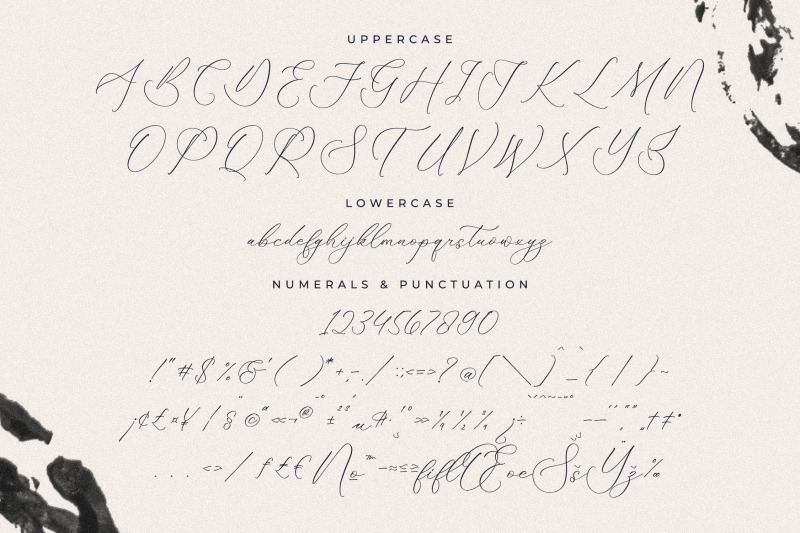 UPPERCASE
A B C D E F G H I J K L M N
O P Q R S T U V W X Y Z
LOWERCASE
abcdefghijklmnopqrstuvwxyz
NUMERALS & PUNCTUATION
1234567890
!"#$%&'()*+,-./:;<=>?@[\]^_`{|}~
¡¢£¤¥¦§¨©ª«¬®¯°±²³´µ¶·¸¹º»¼½¾¿÷
...<>/ƒ₤€№™−≈≤≥fiflŒœŠšŸž‰